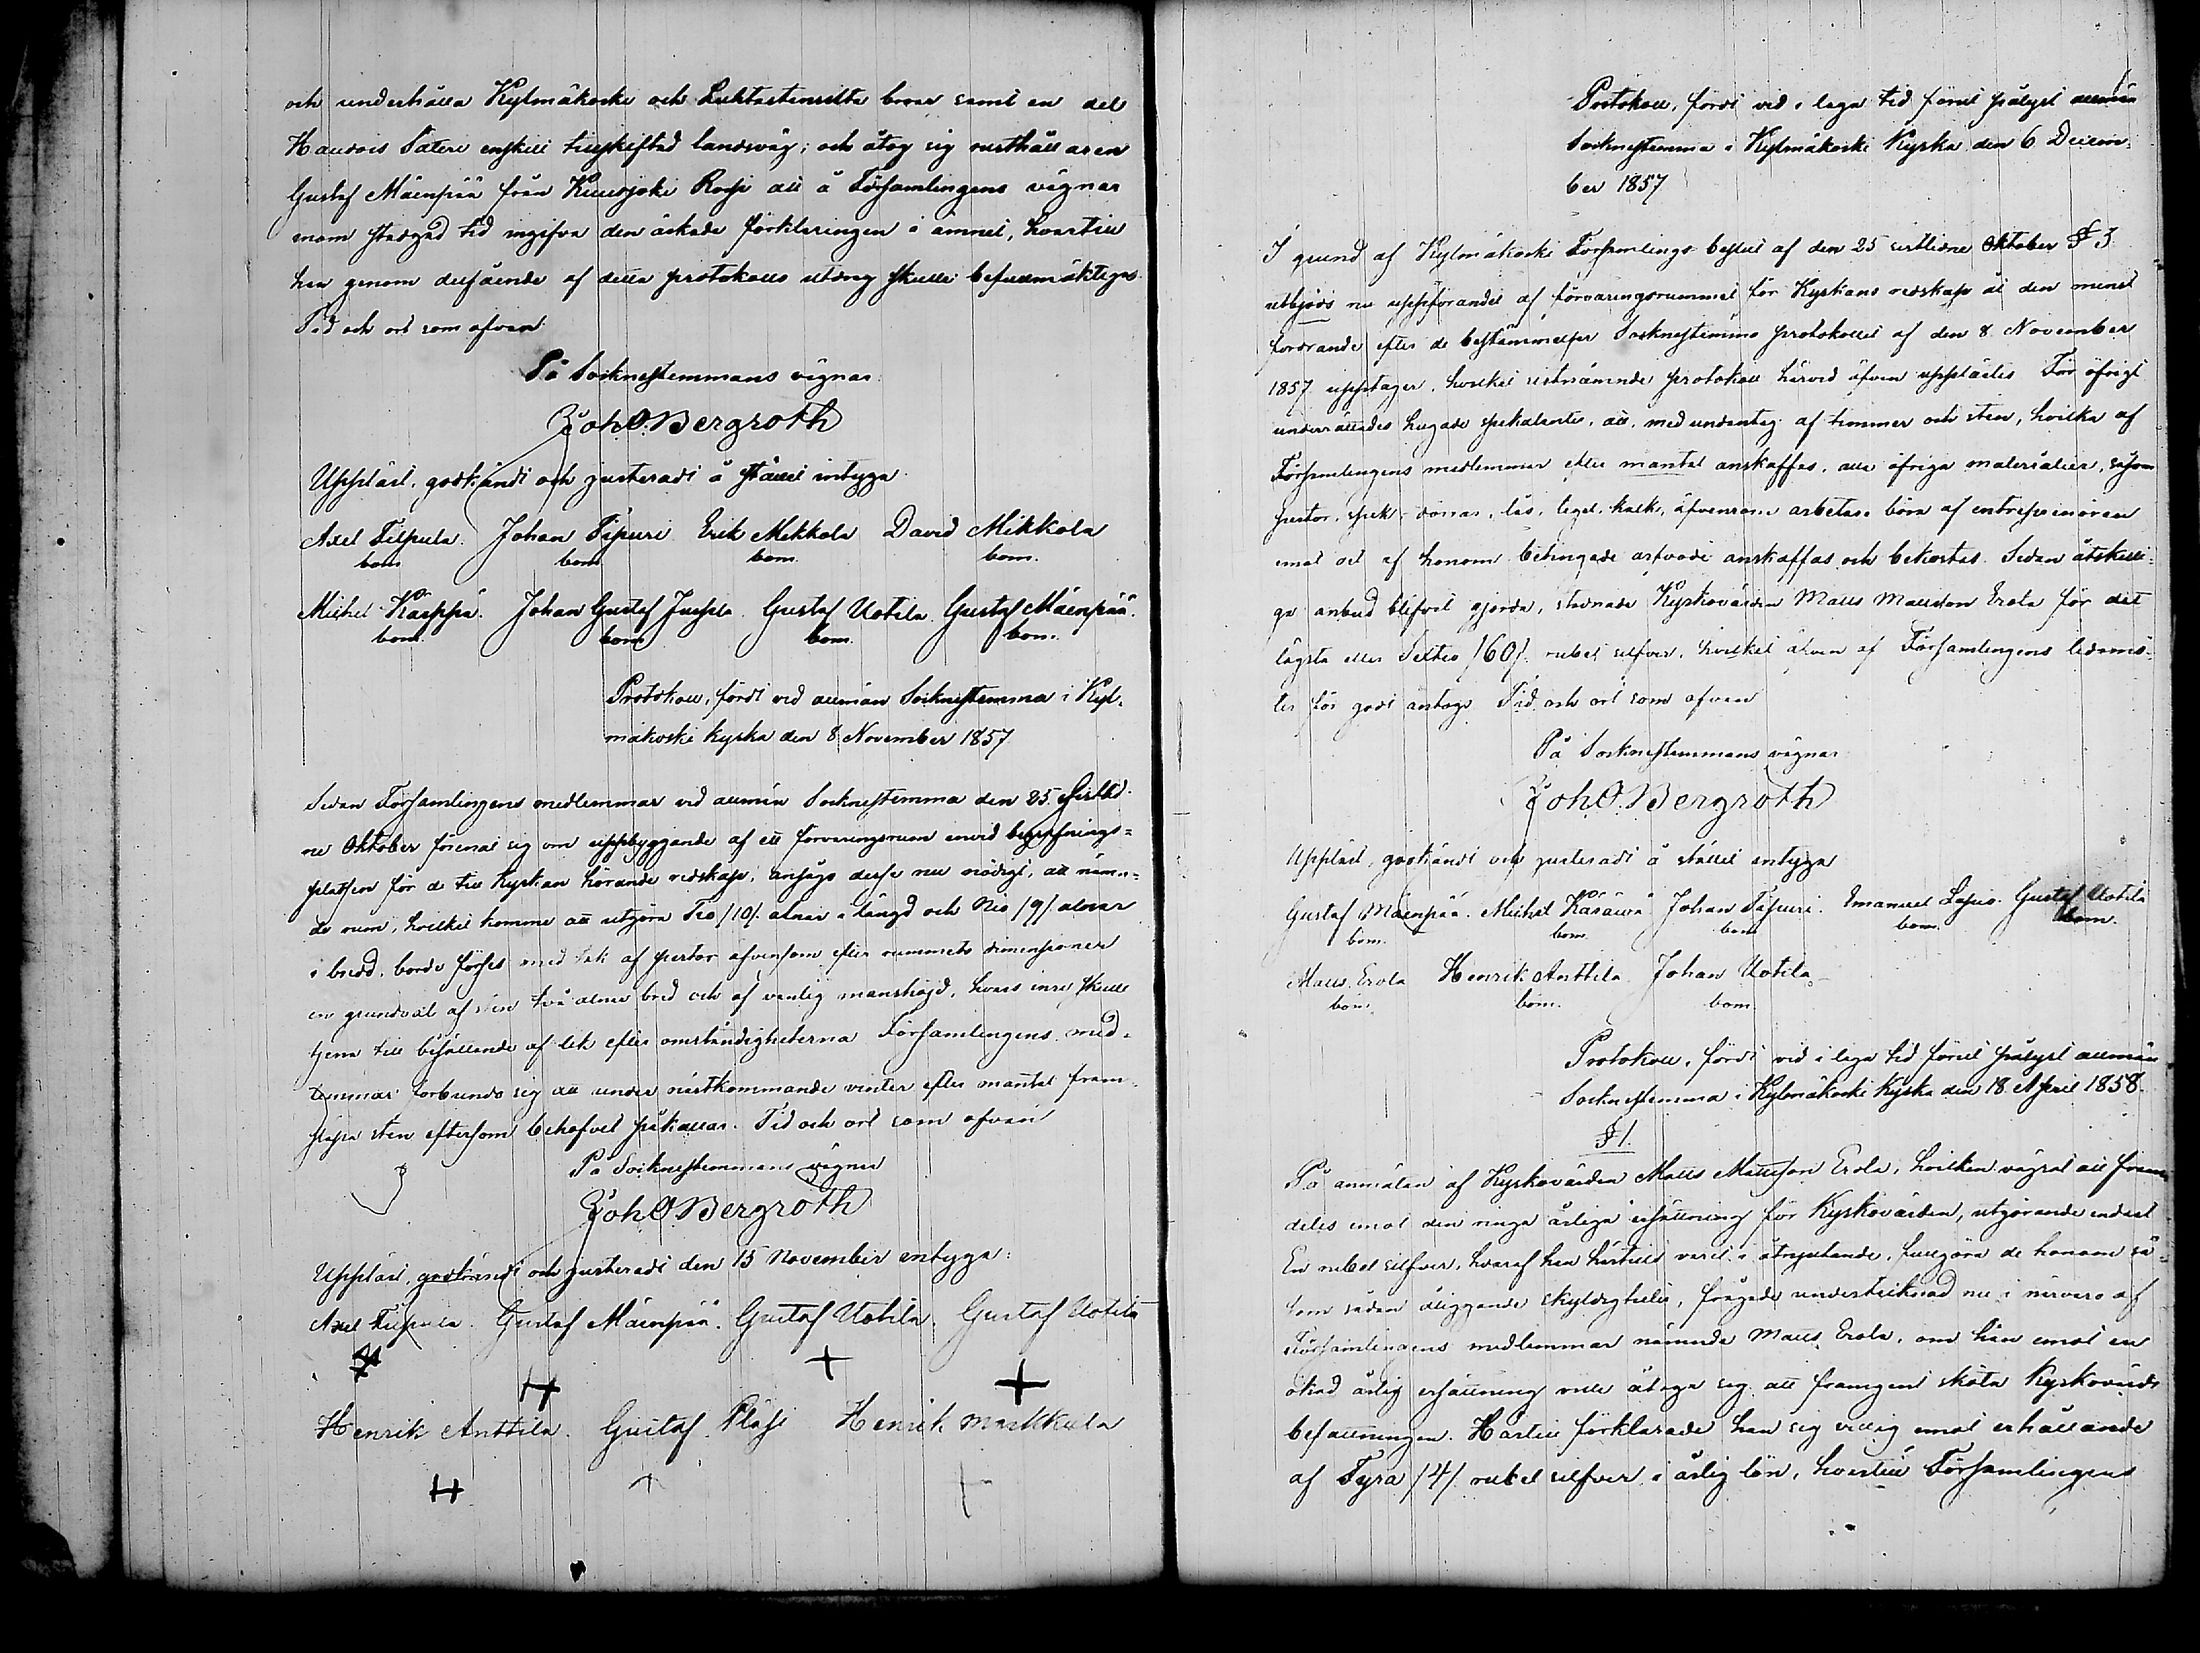 och underhålla Kylmäkoski och broar samt en del
Haudois Säteri enskilt tillskiftad landsväg; och åtog sig rusthållaren
Gustaf Mäenpää från Kuurjoki att å Församlingens vägnar
inom stadgad tid ingifva den äskade förklaringen i ämnet, hvartill
han genom delfående af detta protokolls utdrag skulle befullmäktigas
Tid och ort som ofvan.
På Socknestemmans vägnar
Joh. O. Bergroth
Uppläst, godkändt och justeradt å stället intyga
Axel Tilpula. Johan Tipuri Erik Mikkola David Mikkola
bom. bom. bom. bom.
Michel Kaeppä. Johan Gustaf Gustaf Uotila. Gustaf Mäenpää.
bom. bom. bom. bom.
Protokoll, fördt vid allmän Socknestemma i Kyl-
mäkoski kyrka den 8 November 1857
Sedan Församlingens medlemmar vid allmän Socknestemma den 25 sistlid-
ne Oktober förenat sig om uppbyggande af ett förvaringsrum invid begrafnings-
platsen för de till Kyrkan hörande redskap, ansågs desse nu nödigt, att nämn-
de rum, hvilket komme att utgöra Tio /10/ alnar i längd och Nio /9/ alnar
i bredd, borde förses med tak af pertor äfvensom efter rummets dimensioner
en grundval af sten två alnar bred och af vanlig manshöjd, hvars inre skulle
tjena till af lik efter omständigheterna Församlingens med-
lemmar förbundo sig att under nästkommande vinter efter mantal fram-
släpa sten eftersom behofvet påkallar. Tid och ort som ofvan
På Socknestemmans vägnar
Joh O Bergroth
Uppläst, godkändt och justeradt den 15 November intyga:
Axel Tilpula. Gustaf Mäenpää. Gustaf Uotila. Gustaf Uotila
Henrik Anttila. Gustaf Henrik Markkula
Protokoll, fördt vid i laga tid förut pålyst allmän
Socknestemma i Kylmäkoski Kyrka den 6 Decem-
ber 1857
I grund af Kylmäkoski Församlings beslut af den 25 sistlidne Oktober § 3
utbjöds nu uppförandet af förvaringsrummet för Kyrkans redskap åt den minst
fordrande efter de bestämmelser Socknestemmo protokollet af den 8 November
1857 upptager, hvilket sistnämnde protokoll härvid äfven upplästes För öfrigt
underrättades hugade spekulanter, att, med undantag af timmer och sten, hvilka af
Församlingens medlemmar efter mantal anskaffas, alla öfriga materialier, såsom
pertor, spik, dörrar, lås, tegel, kalk, äfvensom arbetare böra af entreprenören
emot det af honom betingade arfvode anskaffas och bekostas. Sedan åtskilli-
ga anbud blifvit gjorda, stannade Kyrkovärden Matts Mattsson Erola för det
lägsta eller Sextio /60/ rubel silfver, hvilket äfven af Församlingens ledamö-
ter för godt antogs Tid och ort som ofvan
På Socknestemmans vägnar
Joh O. Bergroth
Uppläst, godkändt och justeradt å stället intyga
Gustaf Mäenpää. Michel Johan Tipuri. Emanuel Gustaf Uotila
bom. bom. bom. bom. bom.
Matts Erola Henrik Anttila Johan Uotila
bom. bom. bom.
Protokoll, fördt vid i laga tid förut pålyst allmän
Socknestemma i Kylmäkoski Kyrka den 18 April 1858.
§ 1.
På anmälan af Kyrkovärden Matts Mattsson Erola, hvilken vägrat att fram-
deles emot den ringa årliga ersättning för Kyrkovärden, utgörande endast
En rubel silfver, hvaraf han härtills varit i åtnjutande, fullgöra de honom så-
som sådan åliggande skyldigheter, frågade undertecknad nu i närvaro af
Församlingens medlemmar nämnde Matts Erola, om han emot en
ökad årlig ersättning ville åtaga sig att framgent sköta Kyrkovärds
befattningen. Härtill förklarade han sig villig emot erhållande
af Fyra /4/ rubel silfver i årlig lön, hvartill Församlingens